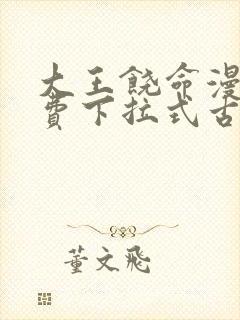 大王饶命漫
费下拉式古
董文飛